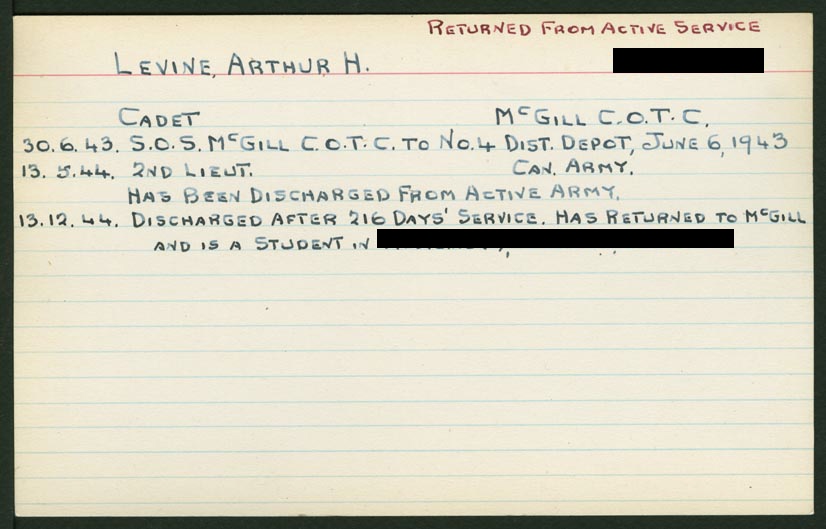 RETURNED FROM ACTIVE SERVICE
LEVINE, ARTHUR H.
CADET McGILL C.O.T.C.
30.6.43. S.O.S. McGILL C.O.T.C. TO No.4 DIST. DEPOT, JUNE 6, 1943
13. 5.44. 2ND LIEUT. CAN. ARMY.
HAS BEEN DISCHARGED FROM ACTIVE ARMY.
13.12.44. DISCHARGED AFTER 216 DAYS' SERVICE. HAS RETURNED TO McGILL
AND IS A STUDENT IN